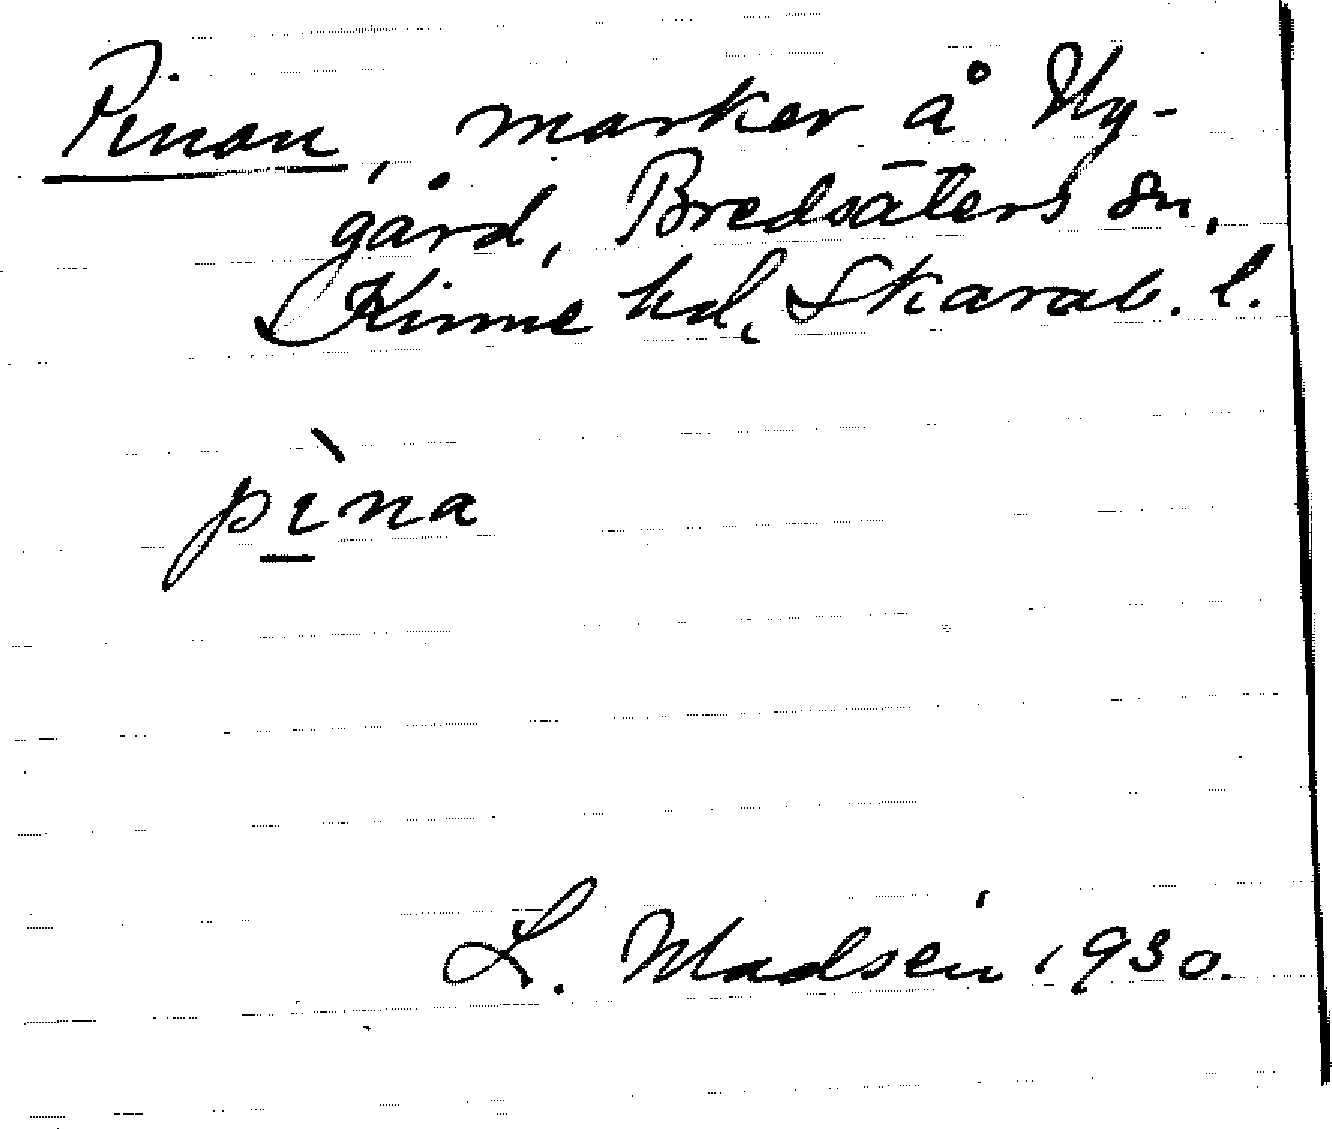 Pinan, marker å Ny-
gård, Bredsäters sn,
Kinne hd, Skarab. l.
pìna
L. Madsén 1930.